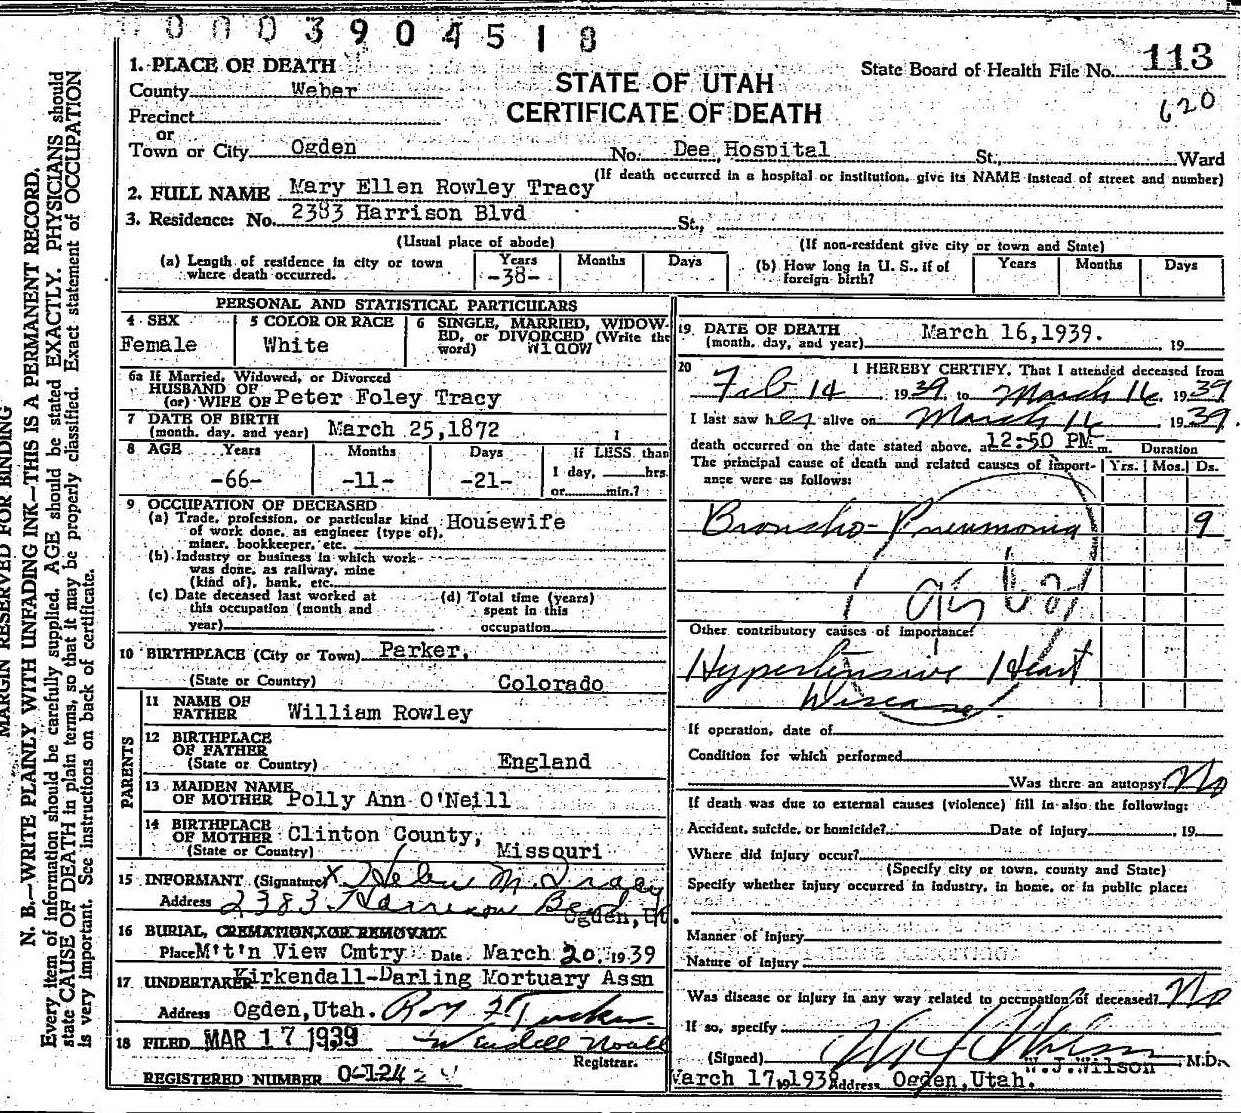 0003904518
1. PLACE OF DEATH
County Weber
Precinct
or
Town or City Ogden
STATE OF UTAH
CERTIFICATE OF DEATH
State Board of Health File No. 113
620
No. Dee Hospital St., Ward
(If death occurred in a hospital or institution, give its NAME instead of street and number)
2. FULL NAME Mary Ellen Rowley Tracy
3. Residence: No. 2383 Harrison Blvd St.,
(Usual place of abode)
(If non-resident give city or town and State)
(a) Length of residence in city or town where death occurred. Years -38- Months Days
(b) How long in U. S., if of foreign birth? Years Months Days
PERSONAL AND STATISTICAL PARTICULARS
4 SEX
Female
5 COLOR OR RACE
White
6 SINGLE, MARRIED, WIDOW-
ED, or DIVORCED (Write the
word) Widow
6a If Married, Widowed, or Divorced
HUSBAND OF
(or) WIFE OF Peter Foley Tracy
7 DATE OF BIRTH
(month, day, and year) March 25,1872
8 AGE Years Months Days If LESS than
-66- -11- -21- 1 day, hrs.
or min.?
9 OCCUPATION OF DECEASED
(a) Trade, profession, or particular kind Housewife
of work done, as engineer (type of),
miner, bookkeeper, etc.
(b) Industry or business in which work
was done, as railway, mine
(kind of), bank, etc.
(c) Date deceased last worked at
this occupation (month and
year)
(d) Total time (years)
spent in this
occupation
10 BIRTHPLACE (City or Town) Parker,
(State or Country) Colorado
PARENTS
11 NAME OF
FATHER William Rowley
12 BIRTHPLACE
OF FATHER
(State or Country) England
13 MAIDEN NAME
OF MOTHER Polly Ann O'Neill
14 BIRTHPLACE
OF MOTHER Clinton County,
(State or Country) Missouri
15 INFORMANT (Signature) x Helen M. Tracy
Address 2383 Harrison Ogden, Ut.
16 BURIAL, CREMATION, OR REMOVAL
Place M't'n View Cmtry Date March 20, 1939
17 UNDERTAKER Kirkendall-Darling Mortuary Assn
Address Ogden,Utah. Roy F Tucker
18 FILED MAR 17 1939
Registrar.
REGISTERED NUMBER
19 DATE OF DEATH March 16,1939.
(month, day, and year) 19
20 I HEREBY CERTIFY, That I attended deceased from
Feb 14 1939, to March 16 1939
I last saw her alive on March 16 1939.
death occurred on the date stated above, at 12:50 PM m.
Duration
The principal cause of death and related causes of import-
ance were as follows:
Yrs. Mos. Ds.
Broncho-Pneumonia 9
Other contributory causes of importance:
Hypertensive Heart
Disease
If operation, date of
Condition for which performed
Was there an autopsy? No
If death was due to external causes (violence) fill in also the following:
Accident, suicide, or homicide? Date of Injury , 19
Where did injury occur?
(Specify city or town, county and State)
Specify whether injury occurred in industry, in home, or in public place:
Manner of Injury
Nature of Injury
Was disease or injury in any way related to occupation of deceased? No
If so, specify
(Signed) W.J.Wilson , M.D.
March 17,1939 Address Ogden,Utah.
MARGIN RESERVED FOR BINDING
N. B.—WRITE PLAINLY WITH UNFADING INK—THIS IS A PERMANENT RECORD.
Every item of information should be carefully supplied. AGE should be stated EXACTLY. PHYSICIANS should
state CAUSE OF DEATH in plain terms, so that it may be properly classified. Exact statement of OCCUPATION
is very important. See instructions on back of certificate.